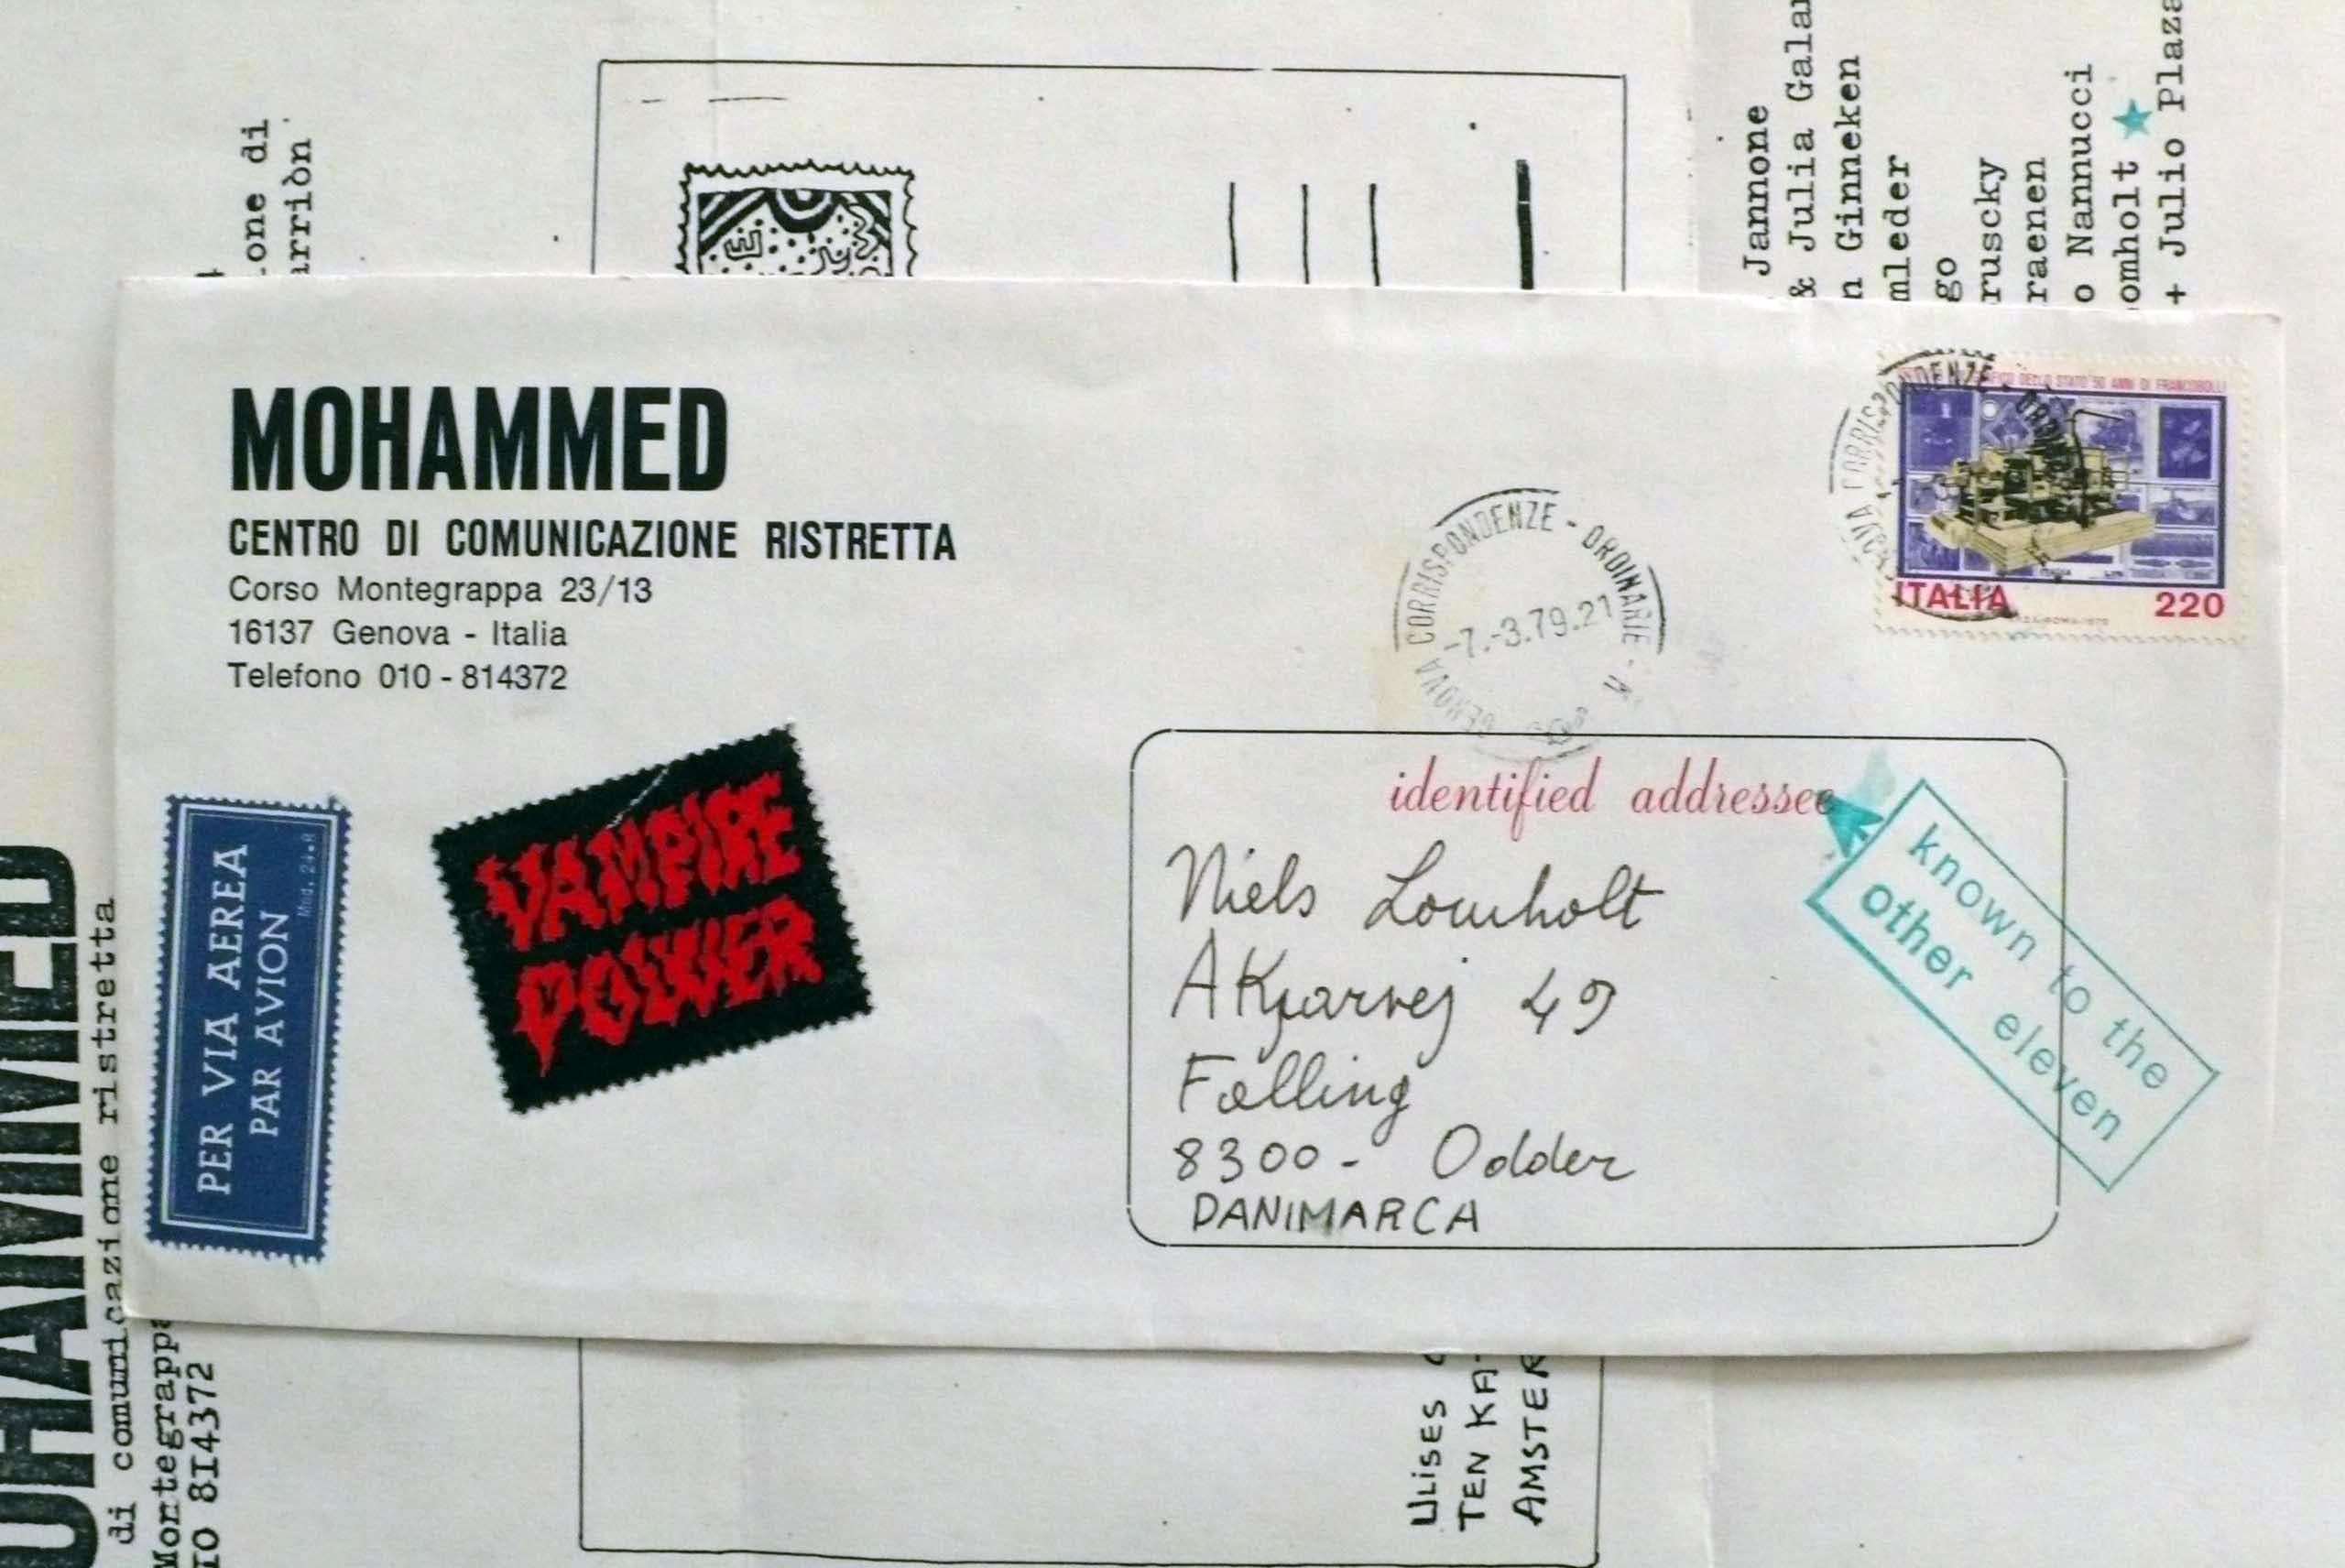 one di
arriòn
Jannone
& Julia Galan
n Ginneken
mleder
go
ruscky
raenen
o Nannucci
omholt ★
+ Julio Plaza
MOHAMMED
CENTRO DI COMUNICAZIONE RISTRETTA
Corso Montegrappa 23/13
16137 Genova - Italia
Telefono 010 - 814372
DELLO STATO 50 ANNI DI FRANCOBOLLI
ITALIA 220
GENOVA CORRISPONDENZE - ORDINARIE
-7.-3.79.21
PER VIA AEREA
PAR AVION
Mod. 24-B
VAMPIRE
POWER
identified addressee
Niels Lomholt
AKjarvej 49
Falling
8300 - Odder
DANIMARCA
known to the
other eleven
OHAMMED
di comunicazione ristretta
Montegrappa
IO 8I4372
ULISES C
TEN KA
AMSTER